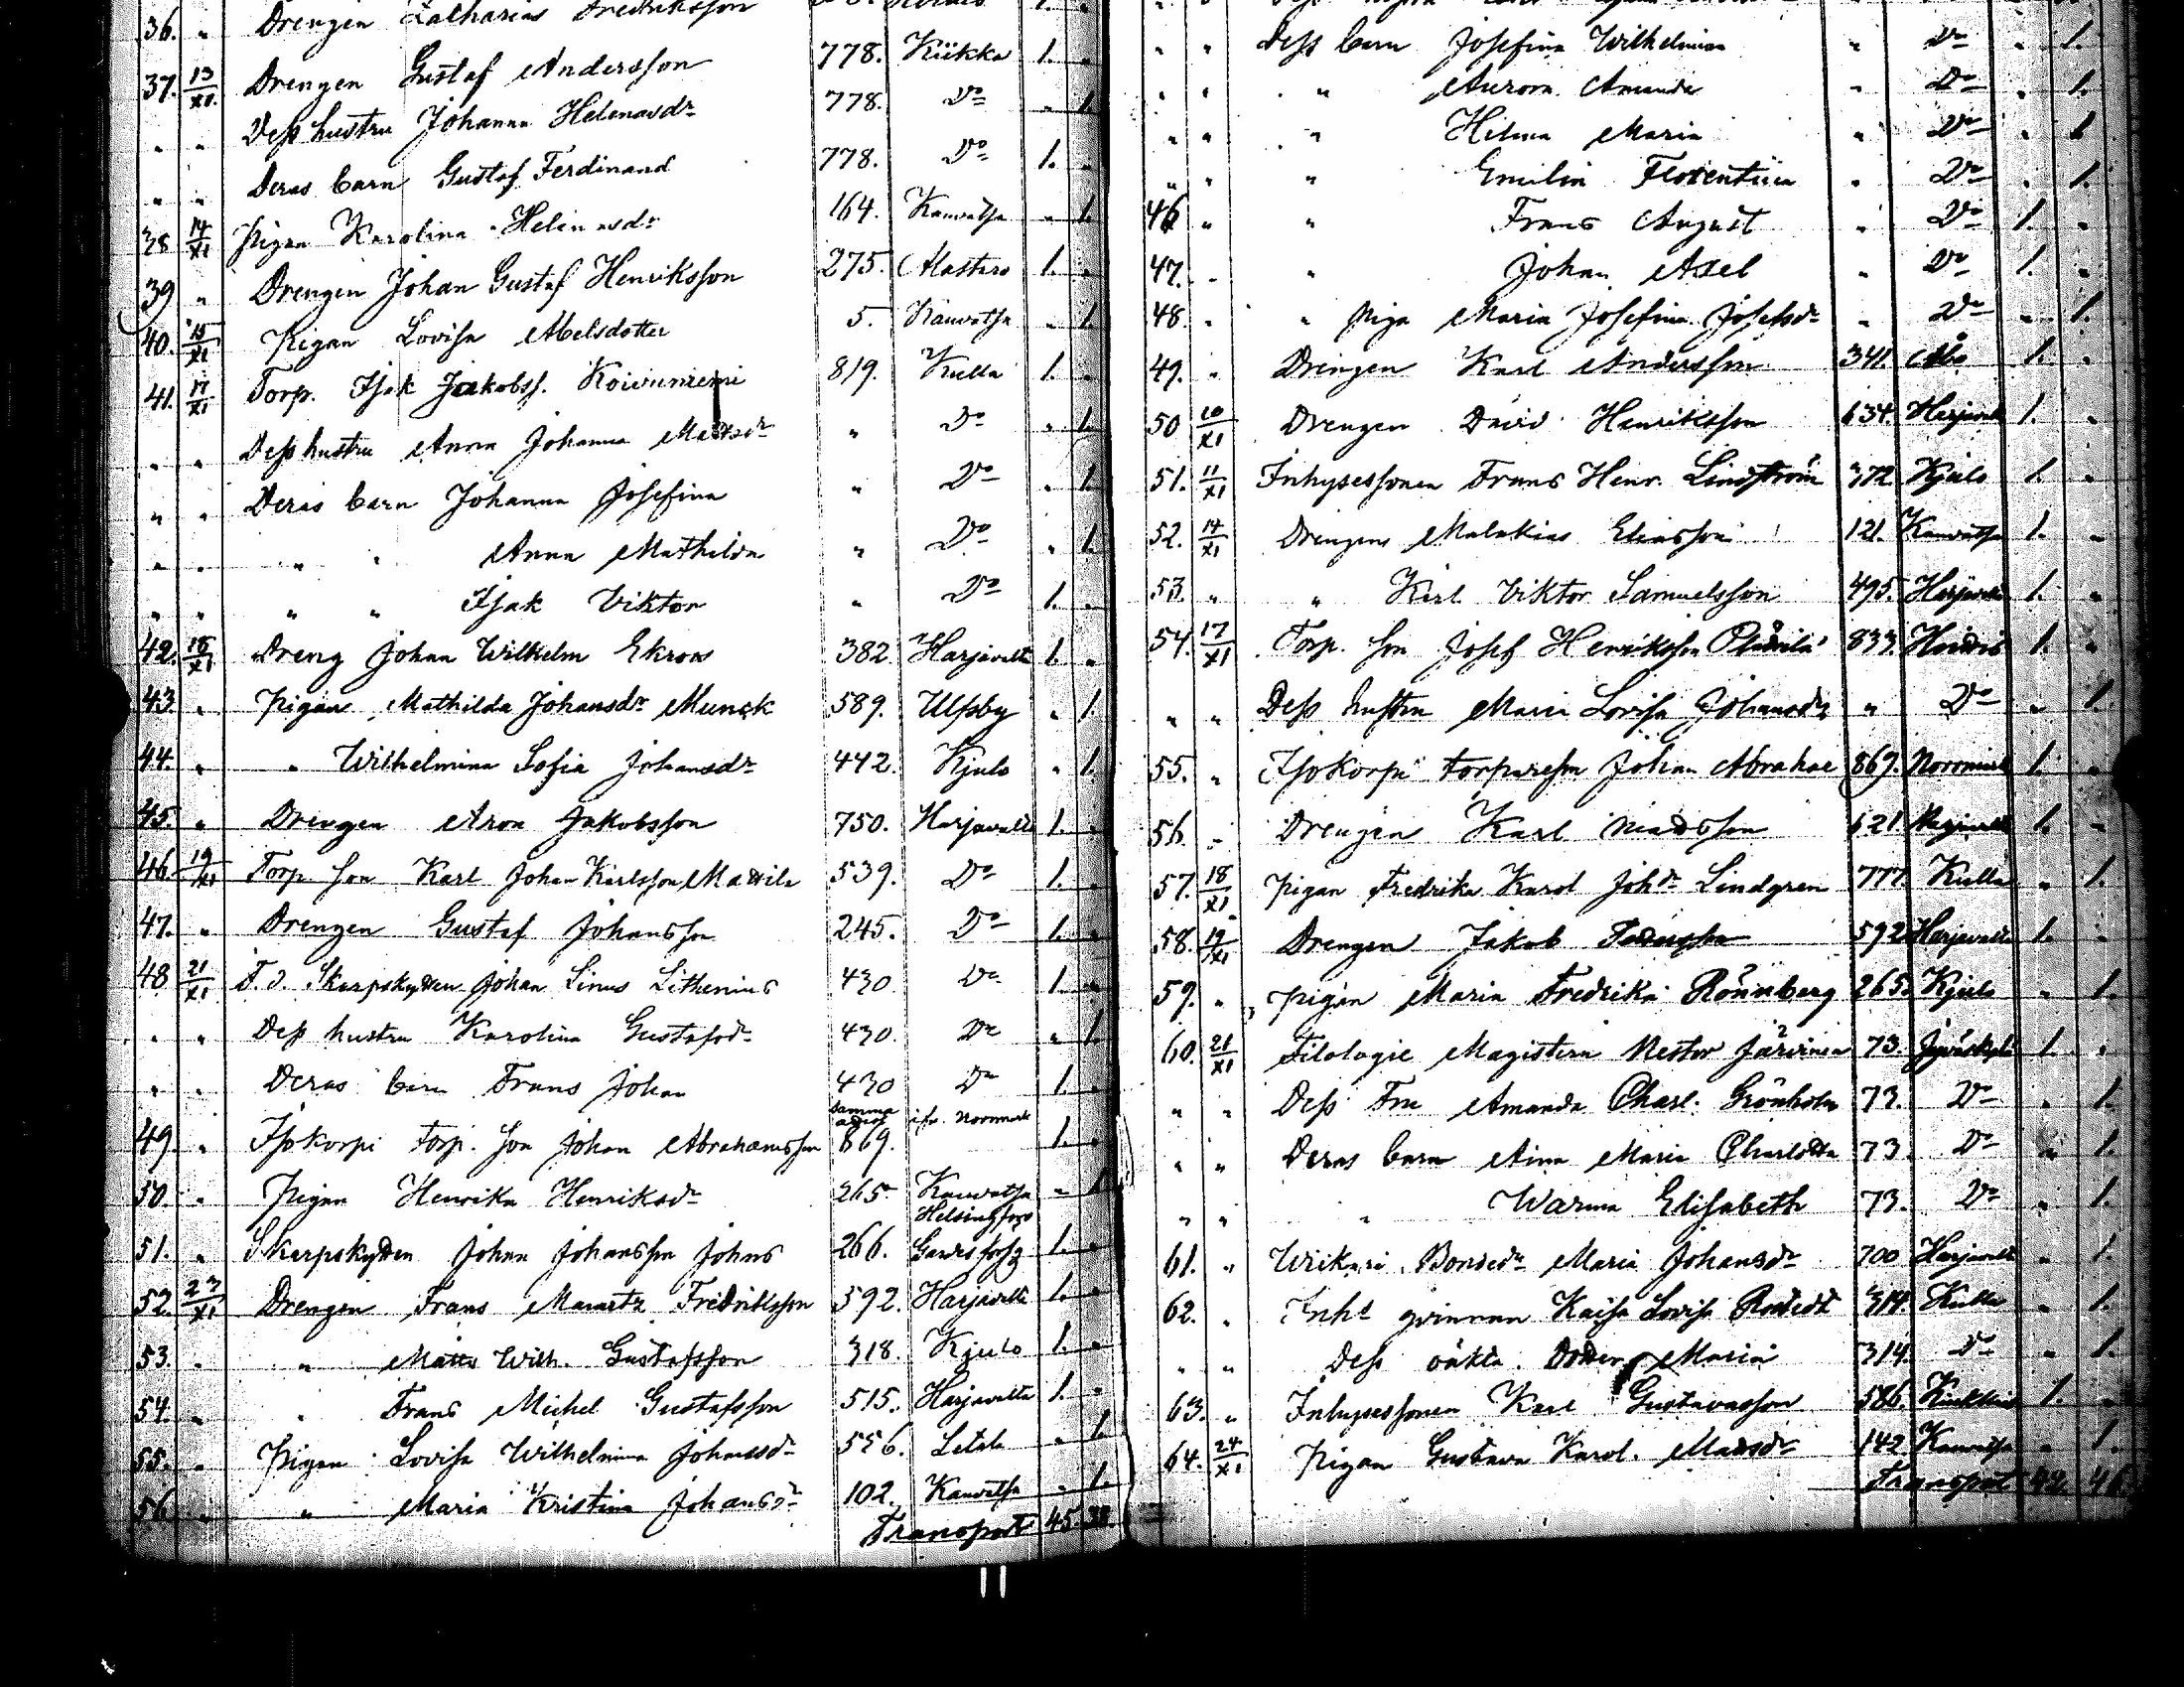 36. " Drengen Zacharias Fredriksson 1. "
37. 13/XI. Drengen Gustaf Andersson 778. Kiikka 1. "
" " Dess hustru Johanna Helenasdr 778. Do " 1.
" " Deras barn Gustaf Ferdinand 778. Do 1. "
38 14/XI Pigan Karolina Helenasdr 164. Kauvatsa " 1.
39 " Drengen Johan Gustaf Henriksson 275. Mastaro 1. "
40. 15/XI Pigan Lovisa Abelsdotter 5. Kauvatsa " 1.
41. 17/XI Torp. Isak Jaakobss. Koivuniemi 819. Kulla 1. "
" " Dess hustru Anna Johanna Mattsdr " Do " 1.
" " Deras barn Johanna Josefina " Do " 1.
" " " " Anna Mathilda " Do " 1.
" " " " Isak Viktor " Do 1. "
42. 18/XI Dreng Johan Wilhelm Ekroos 382. Harjavalta 1. "
43. " Pigan Mathilda Johansdr Munck 589. Ulfsby " 1.
44. " " Wilhelmina Sofia Johansdr 442. Kjulo " 1.
45. " Drengen Aron Jakobsson 750. Harjavalta 1. "
46. 19/XI Torp. son Karl Johan Karlsson Mattila 539. Do 1. "
47. " Drengen Gustaf Johansson 245. Do 1. "
48 21/XI F. d. Skarpskytten Johan Linus Lithenius 430 Do 1. "
" " Dess hustru Karolina Gustafsdr 430. Do " 1.
" " Deras barn Frans Johan 430 Do 1. "
samma ifr. Norrmark
49. " Isokorpi Torp. son Johan Abrahamsson 869. 1. "
50. " Pigan Henrika Henriksdr 265. Kauvatsa " 1.
Helsingfors
51. " Skarpskytten Johan Johansson Johns 266. 1. "
52. 23/XI Drengen Frans Mauritz Fredriksson 392. Harjavalta 1. "
53. " " Matts Wilh. Gustafsson 318. Kjulo 1. "
54. " " Frans Mickel Gustafsson 515. Harjavalta 1. "
55. " Pigan Lovisa Wilhelmina Johansdr 556. Letala " 1.
56. " " Maria Kristina Johansdr 102. Kauvatsa " 1.
Transport 45 38.
" " Dess barn Josefina Wilhelmina " Do " 1.
" " " Aurora Amanda " Do " 1.
" " " Hilma Maria " Do " 1
" " " Emilia Florentina " Do " 1.
46 " " Frans August " Do 1. "
47. " " Johan Axel " Do 1. "
48 " " piga Maria Josefina Josefsdr " Do " 1.
49. " Drengen Karl Andersson 341. Åbo 1. "
50 10/XI Drengen David Henriksson 634. Harjavalta 1. "
51. 11/XI Inhysessonen Frans Henr. Lindström 372 Kjulo 1. "
52. 14/XI Drengens Malakias Eliasson 121. Kauvatsa 1. "
53. " " Karl Viktor Samuelsson 495. Harjavalta 1. "
54. 17/XI Torp. son Josef Henriksson 833. 1. "
" " Dess hustru Maria Lovisa Johansdr " Do " 1.
55. " Isokorpi torparesn Johan Abraha 869. Norrmark 1. "
56. " Drengen Karl Mattsson 621. 1. "
57. 18/XI Pigan Fredrika Karol Johdr Lindgren 777. Kulla " 1.
58. 19/XI Drengen Jakob 592 Harjavalta 1. "
59. " Pigan Maria Fredrika Rönnberg 265. Kjulo " 1.
60. 21/XI Filologie Magistern Nestor Järvinen 73. Jyväskylä 1. "
" " Dess Fru Amanda Charl. Grönholm 73. Do " 1.
" " Deras barn Aina Maria Charlotta 73. Do " 1.
" " " Warma Elisabeth 73. Do " 1.
61. " Wrikari Bondedr Maria Johansdr 700 Harjavalta " 1.
62. " Inhs qvinnan Kaisa Lovisa 314. Kulla " 1.
" " Dess oäkta Dotter Maria 314. Do " 1.
63. " Inhysessonen Karl Gustavasson 586. 1. "
64. 24/XI Pigan Gustava Karol. Mattsdr 142 Kauvatsa " 1.
Transport 42. 46.